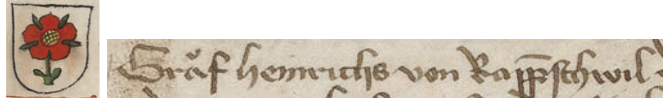 Graͤf heinrichs von Rapp̄schwil